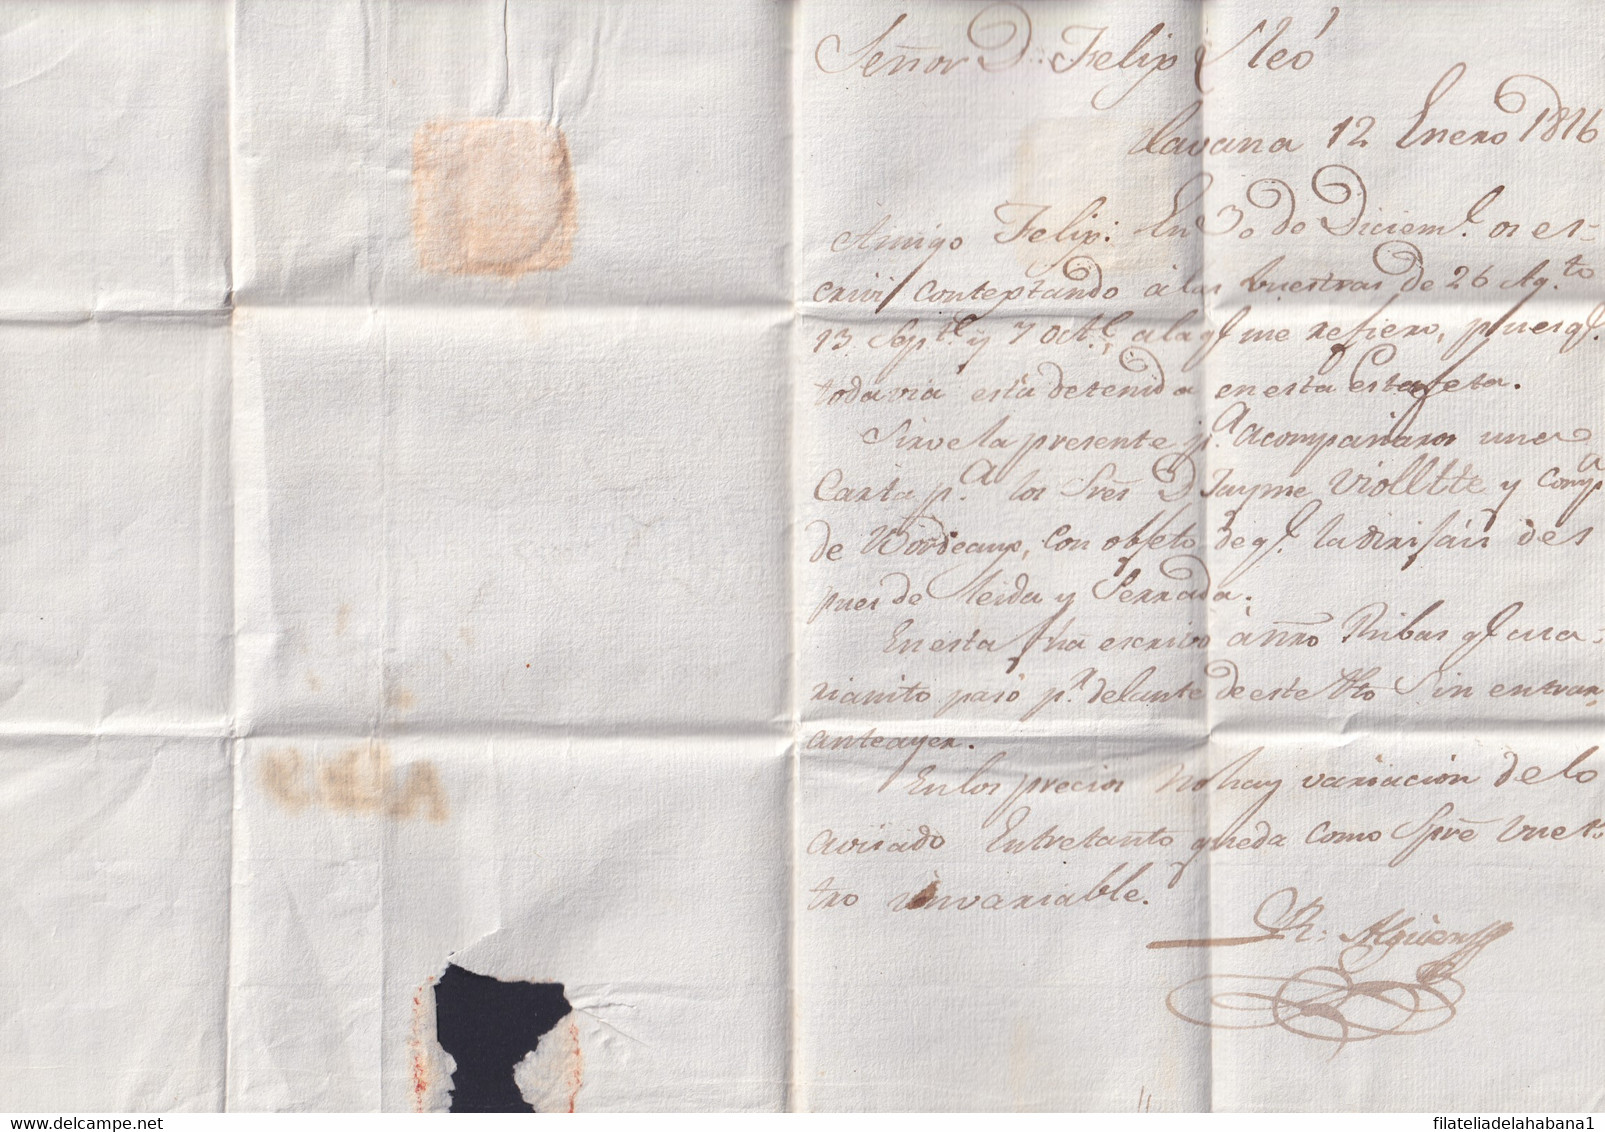 Señor Dn Felip Cleó
Havana 12 Enero 1816
Amigo Felip: En 30 do Dicieme. os es-
crivi Conteptando á las buestras de 26 Agto
13 Septe y 7 Octe, a la qe me refiero, pues qe.
todavia está detenida en esta Estafeta.
Sirve la presente pa. acompañaros una
Carta pa. los Sres D Jayme Violltte y Compa
de Bordeaux, con obfeto de qe. la dirifáis des
pues de leida y Serrada.
En esta ha escrivo á nro Ribas qe Ma-
rianito pasó pr. delante de este Pto Sin entrar,
anteayer.
En los precios no hay variacion de lo
avisado Entretanto queda como Spre vues-
tro invariable.
R. Alguer
filateliadelahabana1